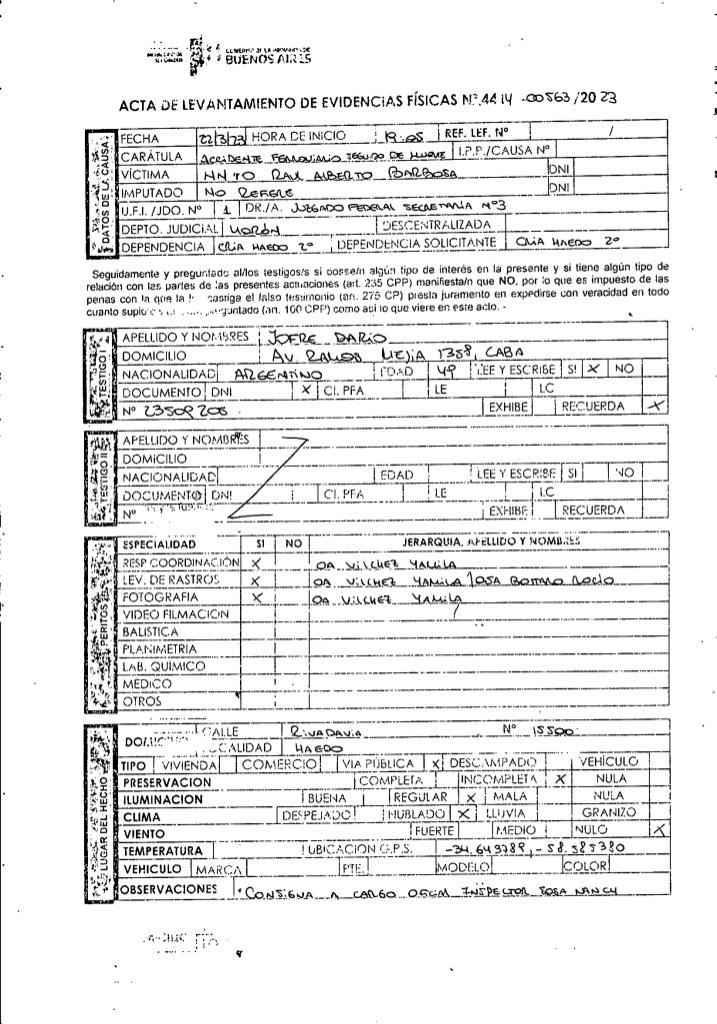 GOBIERNO DE LA PROVINCIA DE
BUENOS AIRES
ACTA DE LEVANTAMIENTO DE EVIDENCIAS FÍSICAS Nº 4414 -00563/2023
DATOS DE LA CAUSA
FECHA 22/3/23 HORA DE INICIO 19:05 REF. LEF. Nº /
CARÁTULA ACCIDENTE FERROVIARIO SEGUIDO DE MUERTE I.P.P./CAUSA Nº
VÍCTIMA NN TO RAUL ALBERTO BARBOSA DNI
IMPUTADO NO REFIERE DNI
U.F.I./JDO. Nº 1 DR./A. JUZGADO FEDERAL SECRETARÍA Nº3
DEPTO. JUDICIAL MORÓN DESCENTRALIZADA
DEPENDENCIA CRIA HAEDO 2º DEPENDENCIA SOLICITANTE CRIA HAEDO 2º
Seguidamente y preguntado al/los testigos/s si posse/n algún tipo de interés en la presente y si tiene algún tipo de
relación con las partes de las presentes actuaciones (art. 235 CPP) manifiesta/n que NO, por lo que es impuesto de las
penas con la que la castiga el falso testimonio (art. 275 CP) presta juramento en expedirse con veracidad en todo
cuanto preguntado (art. 100 CPP) como así lo que viere en este acto. -
TESTIGO I
APELLIDO Y NOMBRES JOFRE DARIO
DOMICILIO AV. RAMOS MEJIA 1358, CABA
NACIONALIDAD ARGENTINO EDAD 49 LEE Y ESCRIBE SI X NO
DOCUMENTO DNI X CI. PFA LE LC
Nº 23509205 EXHIBE RECUERDA X
TESTIGO II
APELLIDO Y NOMBRES
DOMICILIO
NACIONALIDAD EDAD LEE Y ESCRIBE SI NO
DOCUMENTO DNI CI. PFA LE LC
Nº EXHIBE RECUERDA
PERITOS
ESPECIALIDAD SI NO JERARQUIA, APELLIDO Y NOMBRES
RESP COORDINACIÓN X OA. VILCHEZ YAMILA
LEV. DE RASTROS X OA. VILCHEZ YAMILA / OSA ROCIO
FOTOGRAFIA X OA. VILCHEZ YAMILA
VIDEO FILMACION
BALISTICA
PLANIMETRIA
LAB. QUÍMICO
MEDICO
OTROS
LUGAR DEL HECHO
CALLE RIVADAVIA Nº 15500
LOCALIDAD HAEDO
TIPO VIVIENDA COMERCIO VIA PÚBLICA X DESCAMPADO VEHÍCULO
PRESERVACION COMPLETA INCOMPLETA X NULA
ILUMINACION BUENA REGULAR X MALA NULA
CLIMA DESPEJADO NUBLADO X LLUVIA GRANIZO
VIENTO FUERTE MEDIO NULO X
TEMPERATURA UBICACION G.P.S. -34.643789, -58.585380
VEHICULO MARCA PTE. MODELO COLOR
OBSERVACIONES CONSIGNA A CARGO OFICIAL INSPECTOR SOSA NANCY